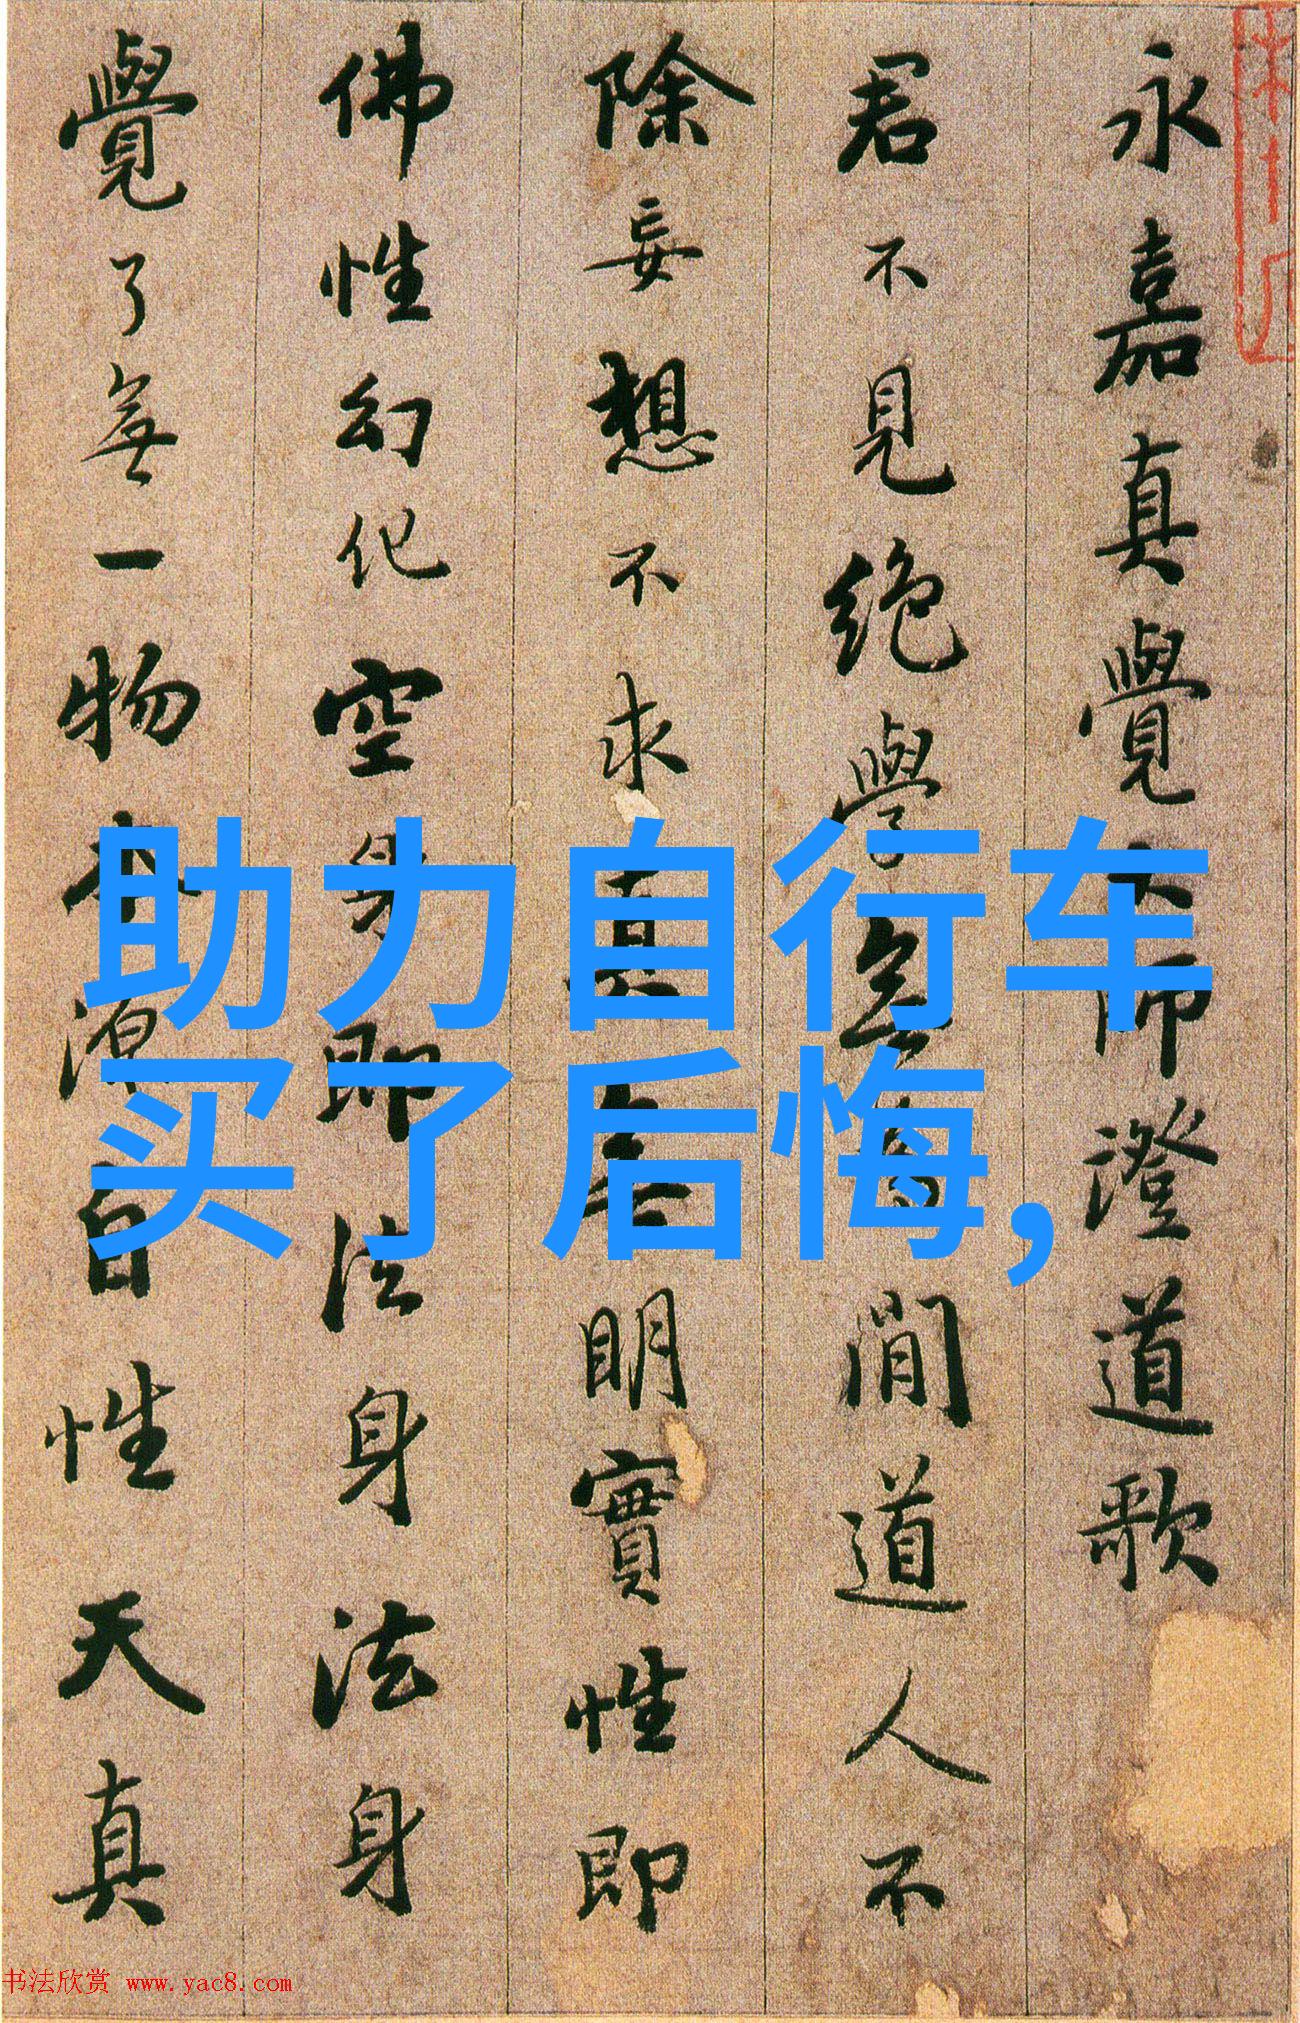 永嘉真覺大師澄道歌
君不見絶學無為閒道人不
除妄想不求真無明實性即
佛性幻化空身即法身法身
覺了無一物本源自性天真
助力自行车
买了后悔,
书法欣赏 www.yac8.com